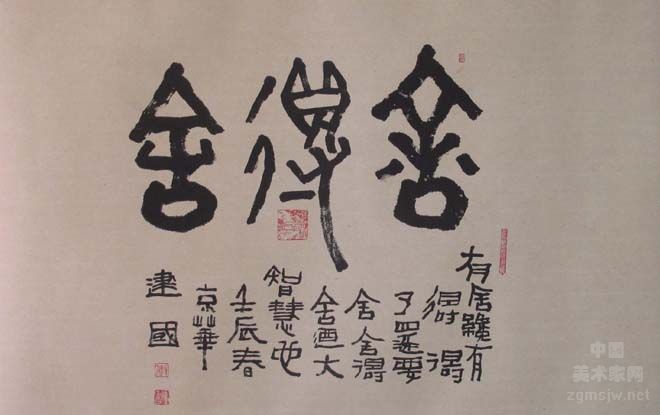 舍得舍
有舍纔有
得 得
了還要
舍 舍得
舍迺大
智慧也
壬辰春
京華
建國
中国
美术家网
zgmsjw.net